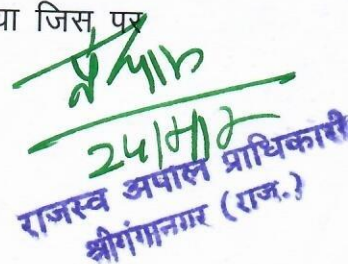 या जिस पर
राजस्व अपील प्राधिकारी
श्रीगंगानगर (राज.)